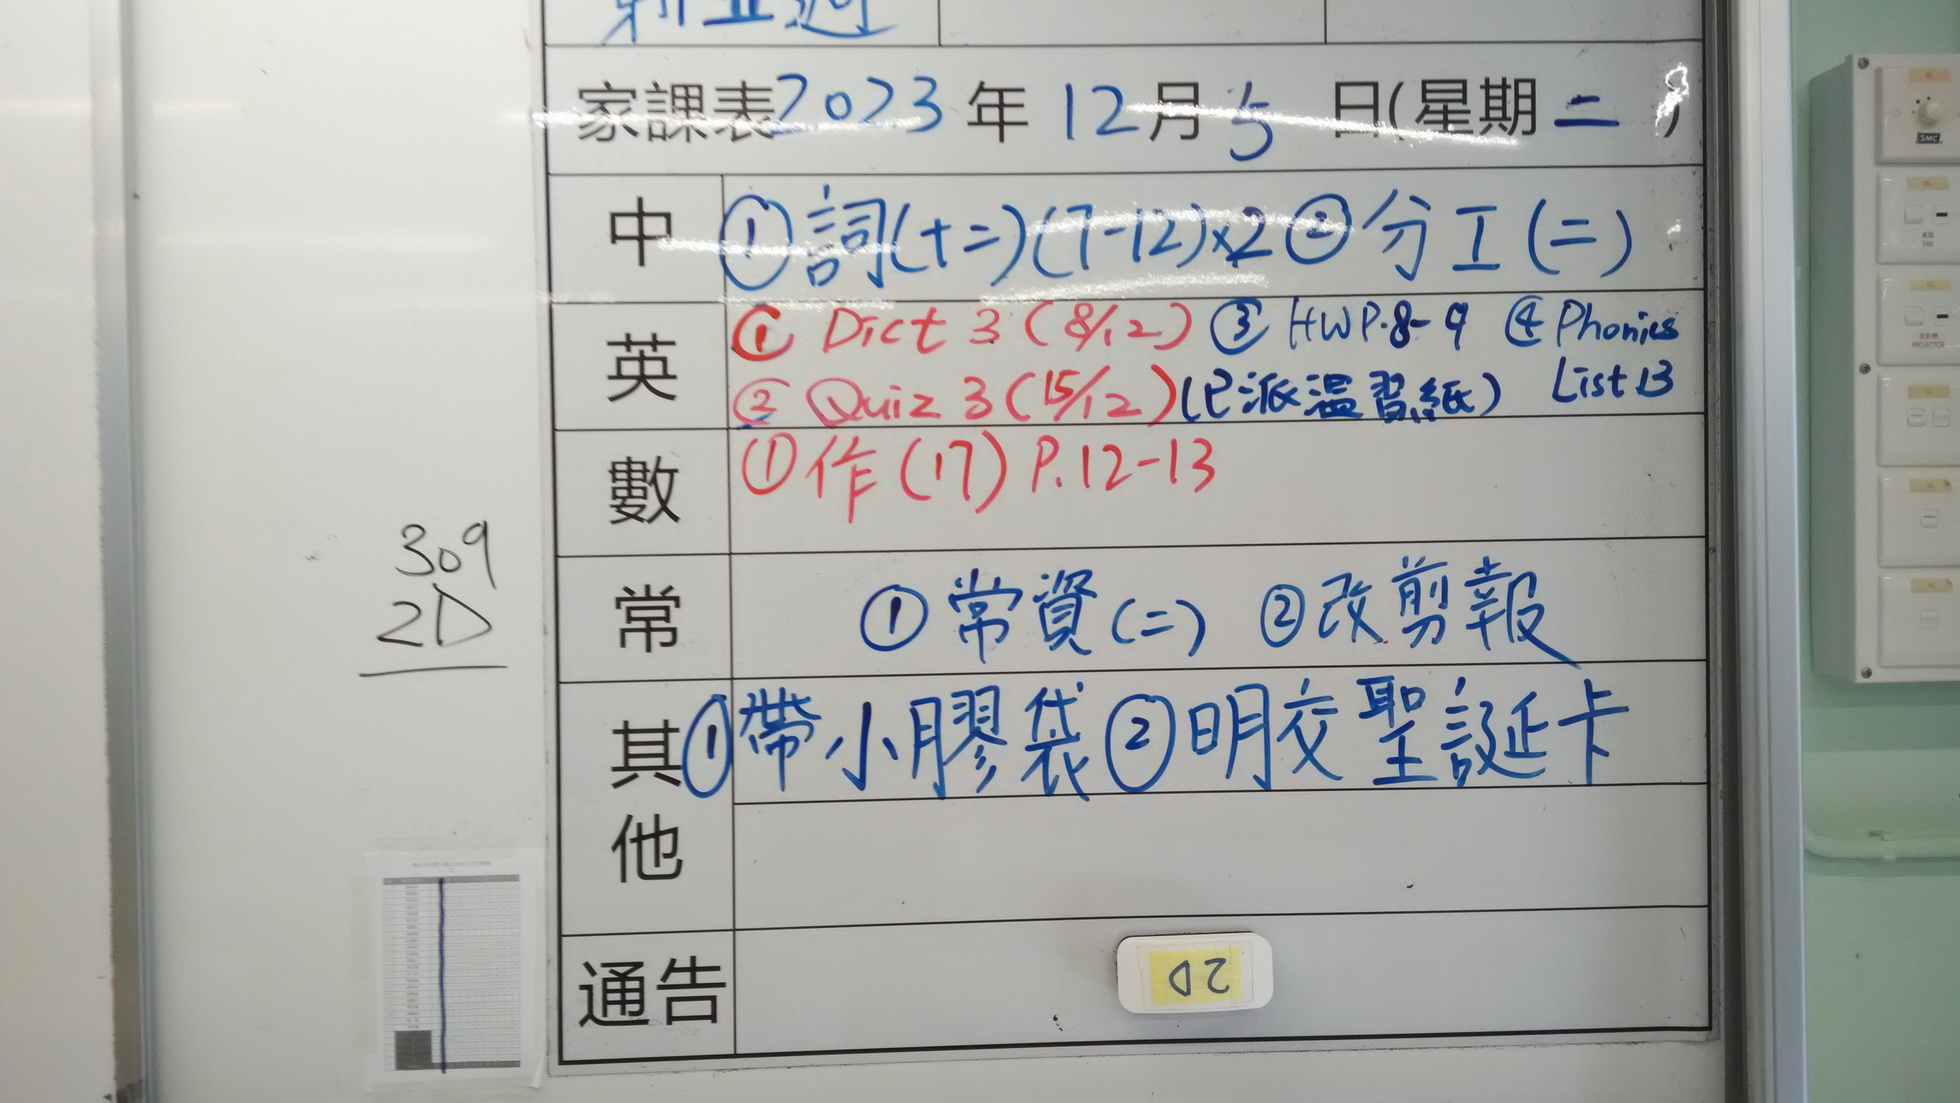 家課表2023年12月5日(星期二)
中 ①詞(十二)(7-12)x2 ②分工(二)
英 ① Dict 3 (8/12) ③ HW P.8-9 ④ Phonics
② Quiz 3 (15/12) (已派溫習紙) List 13
數 ①作(17) P.12-13
309
2D
常 ①常資(二) ②改剪報
其他 ①帶小膠袋②明交聖誕卡
通告
2D
SMC
FAN
PROJECTOR